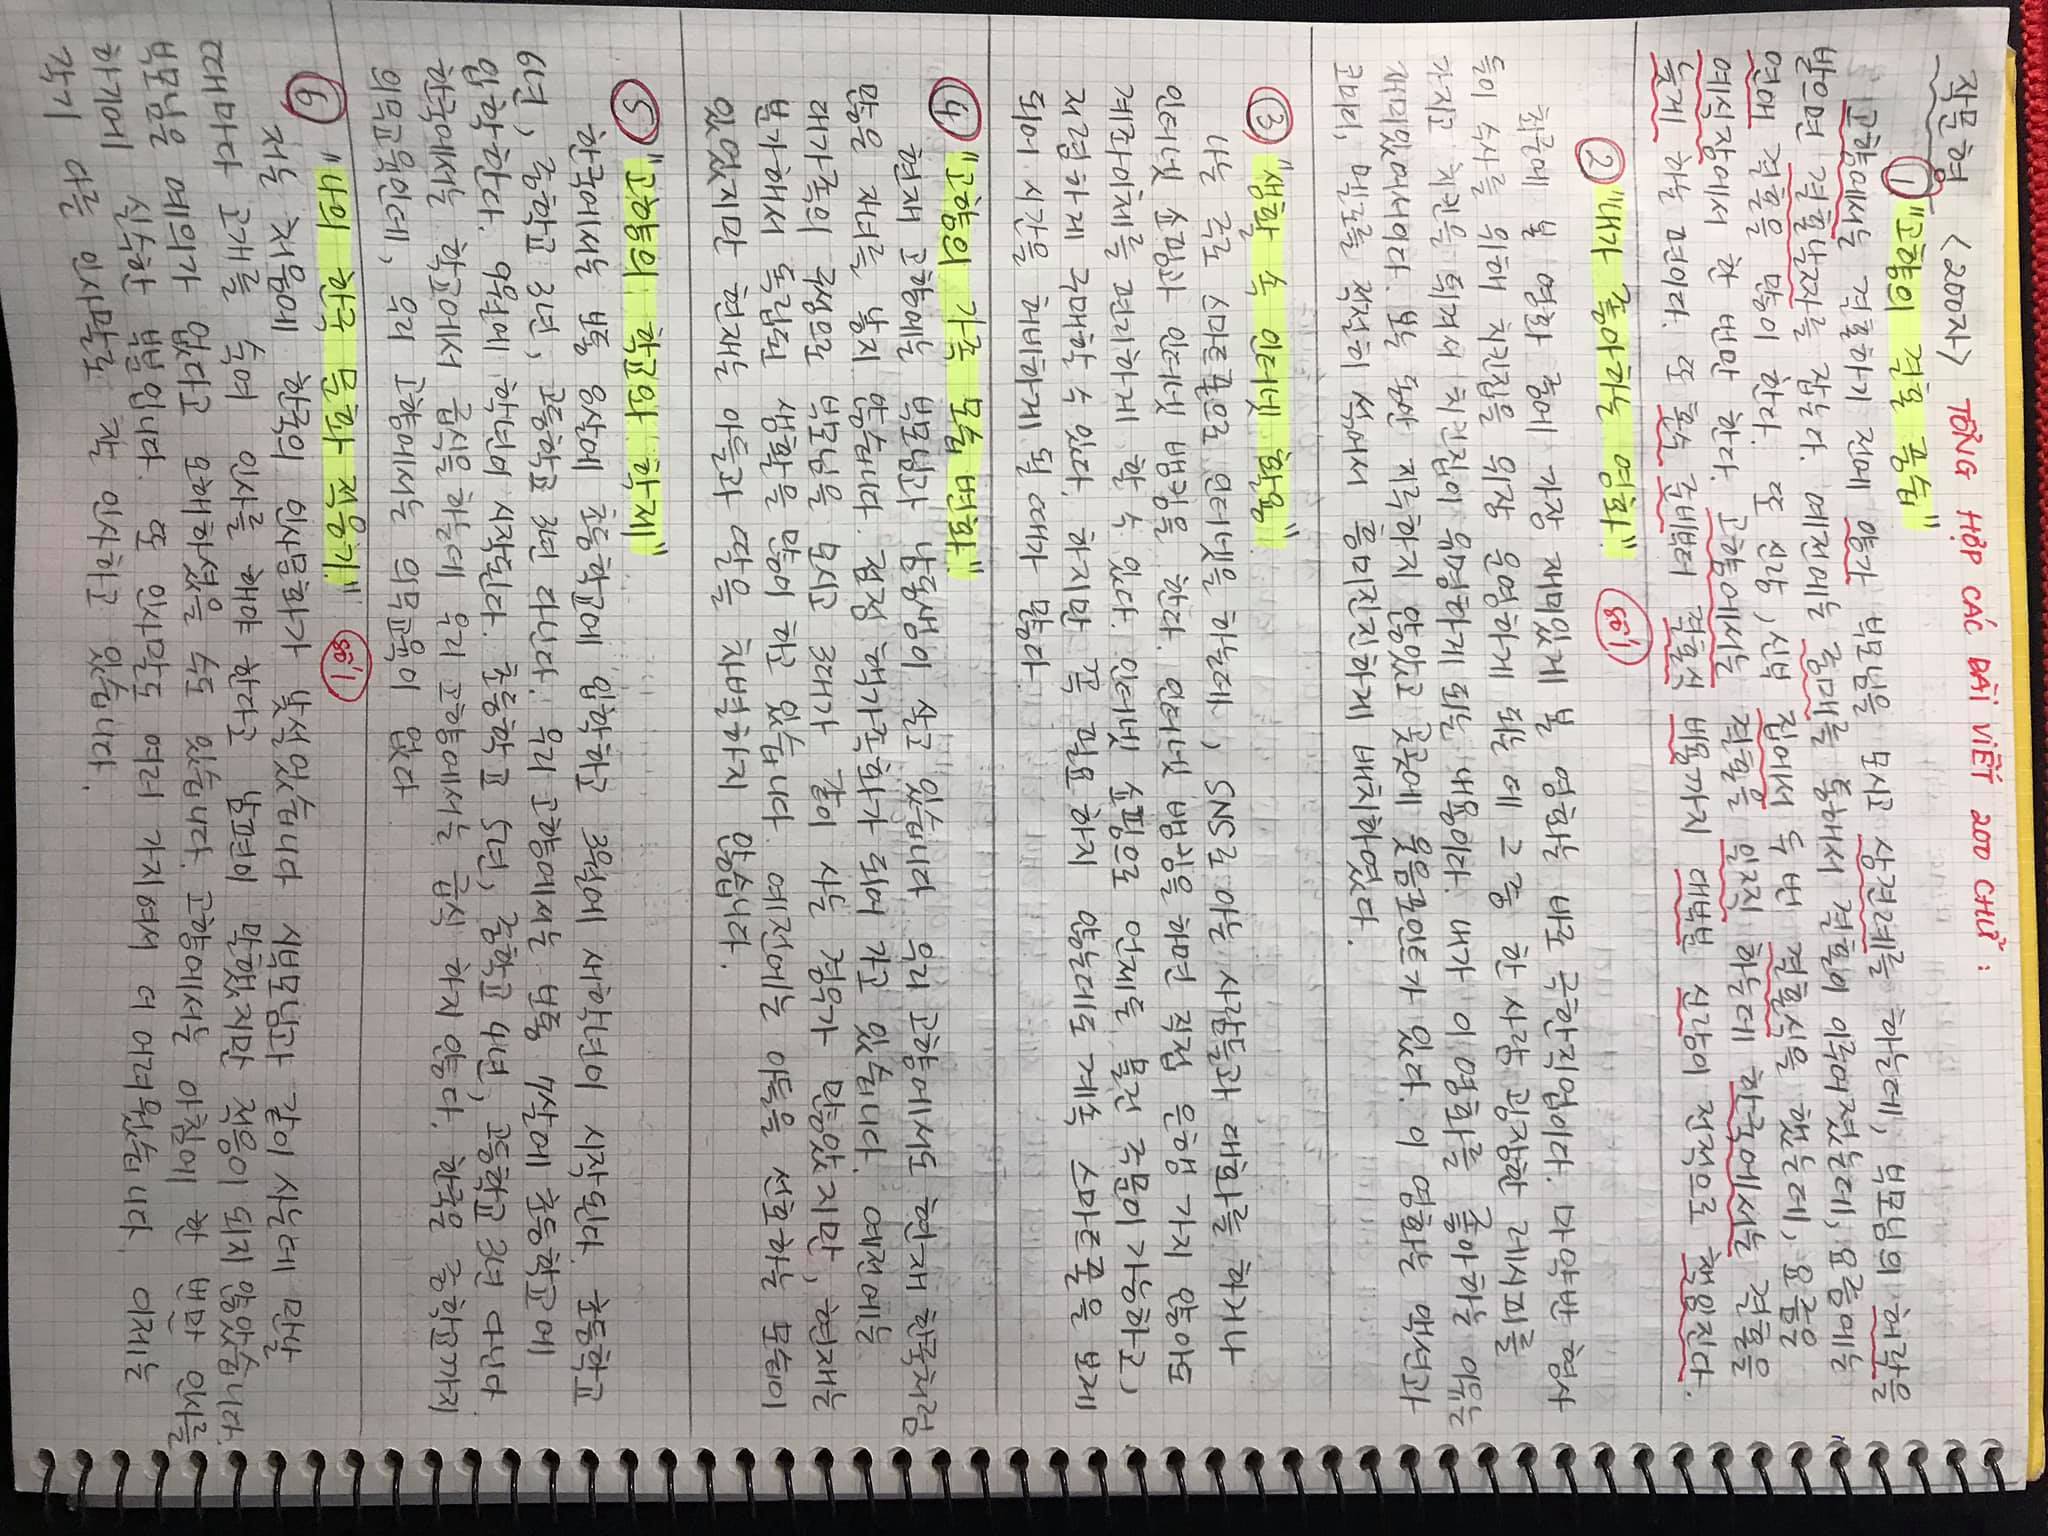 작문형 <200자> TỔNG HỢP CÁC BÀI VIẾT 200 CHỮ :
① "고향의 결혼 풍습"
고향에서는 결혼하기 전에 양가 부모님을 모시고 상견례를 하는데, 부모님의 허락을
받으면 결혼날짜를 잡는다. 예전에는 중매를 통해서 결혼이 이루어졌는데, 요즘에는
연애 결혼을 많이 한다. 또 신랑, 신부 집에서 두 번 결혼식을 했는데, 요즘은
예식장에서 한 번만 한다. 고향에서는 결혼을 일찍 하는데 한국에서는 결혼을
늦게 하는 편이다. 또 혼수 준비부터 결혼식 비용까지 대부분 신랑이 전적으로 책임진다.
② "내가 좋아하는 영화" 80'1
최근에 본 영화 중에 가장 재미있게 본 영화는 바로 극한직업이다. 마약반 형사
들이 수사를 위해 치킨집을 위장 운영하게 되는데 그 중 한 사람 굉장한 레시피를
가지고 치킨을 튀겨서 치킨집이 유명하게 되는 내용이다. 내가 이 영화를 좋아하는 이유는
재미있어서이다. 보는 동안 지루하지 않았고 곳곳에 웃음포인트가 있다. 이 영화는 액션과
코미디, 멜로를 적절히 섞어서 흥미진진하게 배치하였다.
③ "생활 속 인터넷 활용"
나는 주로 스마트폰으로 인터넷을 하는데, SNS로 아는 사람들과 대화를 하거나
인터넷 쇼핑과 인터넷 뱅킹을 한다. 인터넷 뱅킹을 하면 직접 은행 가지 않아도
계좌이체를 편리하게 할 수 있다. 인터넷 쇼핑으로 언제든 물건 주문이 가능하고,
저렴하게 구매할 수 있다. 하지만 꼭 필요하지 않는데도 계속 스마트폰을 보게
되어 시간을 허비하게 될 때가 많다.
④ "고향의 가족 모습 변화"
현재 고향에는 부모님과 남동생이 살고 있습니다. 우리 고향에서도 현재 한국처럼
많은 자녀를 낳지 않습니다. 점점 핵가족화가 되어 가고 있습니다. 예전에는
대가족의 구성으로 부모님을 모시고 3대가 같이 사는 경우가 많았지만, 현재는
분가해서 독립된 생활을 많이 하고 있습니다. 예전에는 아들을 선호하는 모습이
있었지만 현재는 아들과 딸을 차별하지 않습니다.
⑤ "고향의 학교와 학제"
한국에서는 보통 8살에 초등학교에 입학하고 3월에 새학년이 시작된다. 초등학교
6년, 중학교 3년, 고등학교 3년 다닌다. 우리 고향에서는 보통 7살에 초등학교에
입학한다. 9월에 학년이 시작된다. 초등학교 5년, 중학교 4년, 고등학교 3년 다닌다.
한국에서는 학교에서 급식을 하는데 우리 고향에서는 급식 하지 않는다. 한국은 중학교까지
의무교육인데, 우리 고향에서는 의무교육이 없다
⑥ "나의 한국 문화 적응기" 80'1
저는 처음에 한국의 인사문화가 낯설었습니다 시부모님과 같이 사는데 만날
때마다 고개를 숙여 인사를 해야 한다고 남편이 말했지만 적응이 되지 않았습니다.
부모님은 예의가 없다고 오해하셨을 수도 있습니다. 고향에서는 아침에 한 번만 인사를
하기에 신속한 방법입니다. 또 인사말도 여러 가지여서 더 어려웠습니다. 이제는
각기 다른 인사말로 잘 인사하고 있습니다.